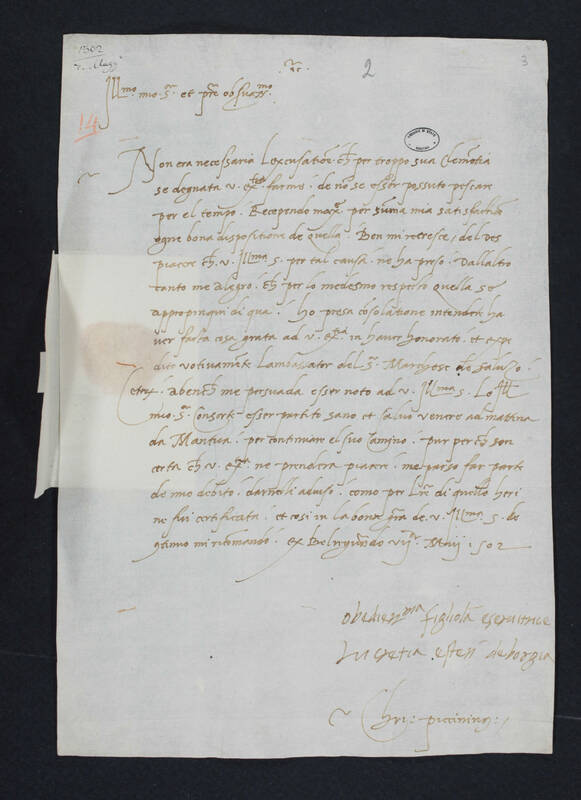 1502
7. Magg
2
3
14
Ill.mo mio S.r et pre obser.mo
Non era necessaria Lexcusatione ch per troppo sua Clementia
se degnata v. ex.tia farme: de nō se esser possuto pescare
per el tempo. Recependo per summa mia satisfactiōe
ogne bona dispositione de quella. Ben mi recresce, del des
piacere ch. v. Ill.ma S. per tal causa ne ha preso. Dallaltro
canto me alegro: ch per lo medesmo respecto quella se
appropinqui di qua. Ho presa cōsolatione intendere ha
ver facta cosa grata ad v. ex.tia in haver honorato: et expe
dito votivamēte Lambassator del S.r Marchese de Saluzo.
Cetex. abench me persuada esser noto ad v. Ill.ma S. Lo Ill.
mio S.r Consorte esser partito sano et salvo venere ad mattina
da Mantua. per continuare el suo Camino. pur perch son
certa ch v. ex.tia ne prendera piacere: me parso far parte
de mio debito: darneli adviso: como per Lre di quello heri
ne fui certificata. et cosi in la bona gra de. v. Ill.ma S. de
cōtinuo mi ricomando. Ex Belrguardo vij Maij .502
obedien.ma figliola e servitrice
Lucretia esten de borgia
Chri: piccinin: